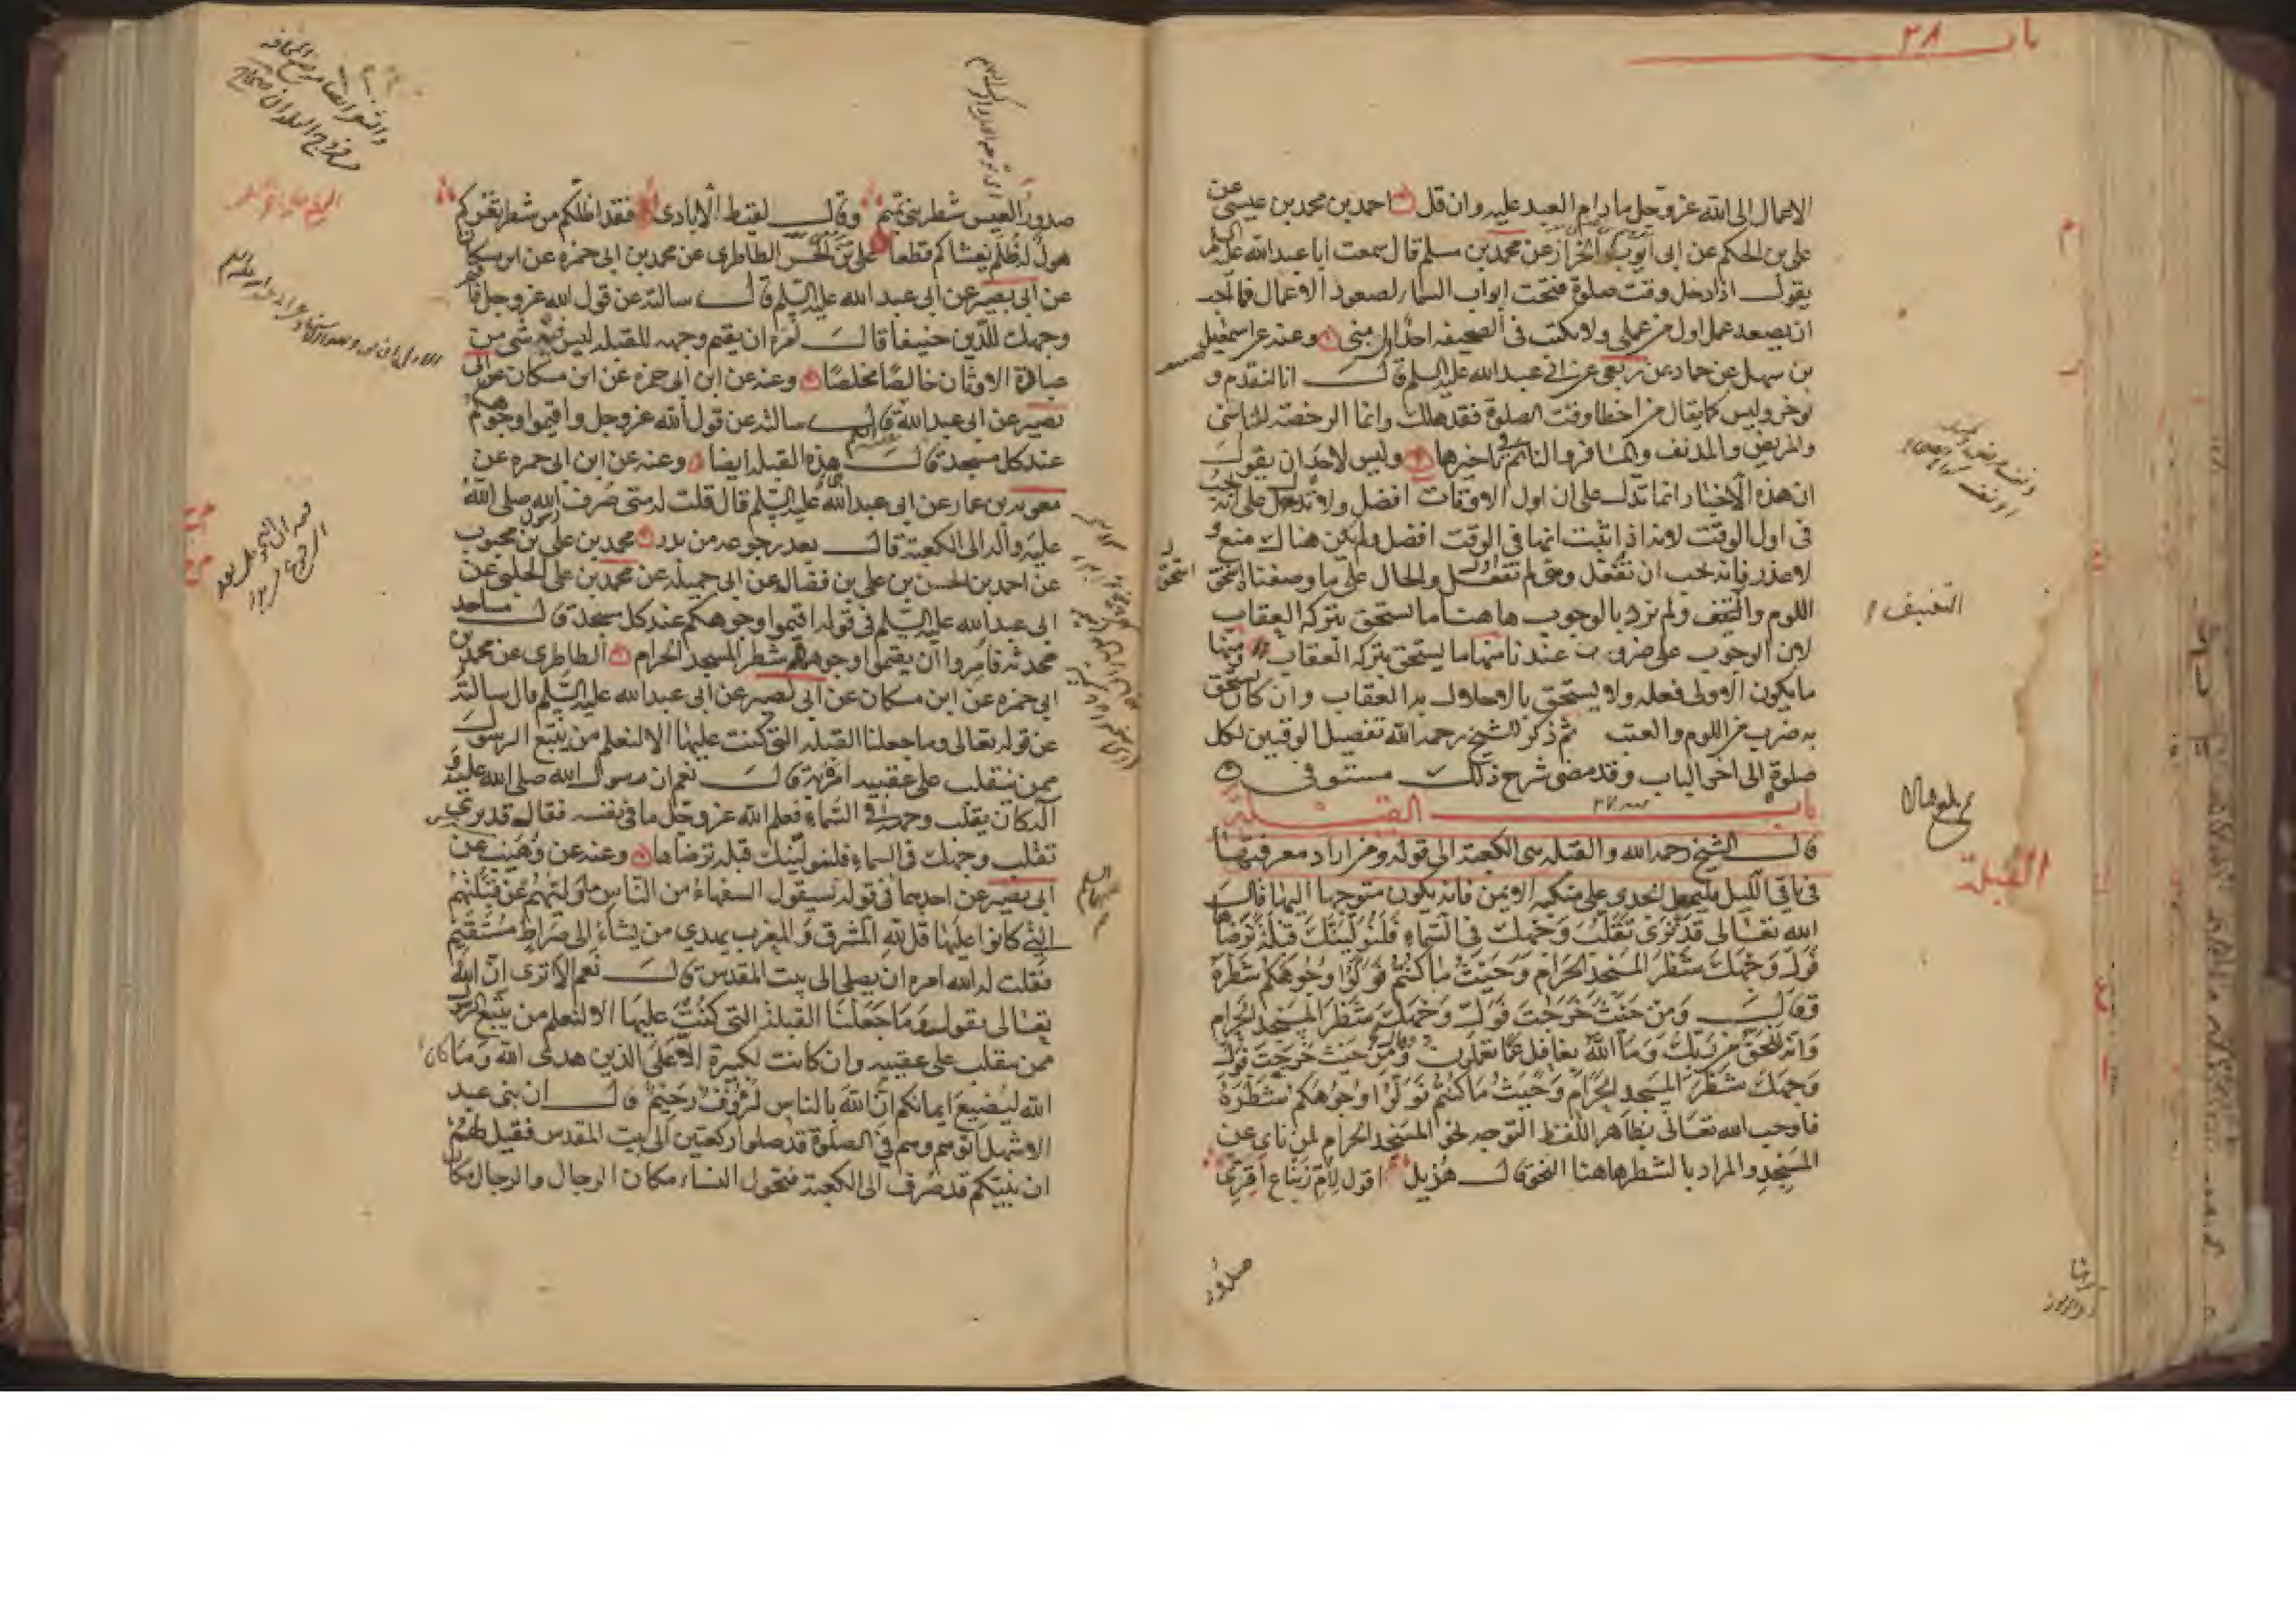 باب ٢٨
الاعمال الى الله عز وجل ما دام العبد عليه وان قل احمد بن محمد بن عيسى عن
على بن الحكم عن ابى ايوب الخراز عن محمد بن مسلم قال سمعت ابا عبد الله عليه السلم
يقول اذا دخل وقت صلوة فتحت ابواب السماء لصعود الاعمال فما احب
ان يصعد عمل اول من عملى ولا يكتب فى الصحيفه احد اول منى وعنه عن اسمعيل
بن سهل عن حماد عن ربعى عن ابى عبد الله عليه السلم قال انا لنقدم و
نوخر وليس كما يقال من اخطا وقت الصلوة فقد هلك وانما الرخصة للناسى
والمريض والمدنف والمسافر والنائم فى تاخيرها وليس لاحد ان يقول
ان هذه الاخبار انما تدل على ان اول الاوقات افضل ولا تدل على انه يجب
فى اول الوقت لانه اذا ثبتت انها فى الوقت افضل ولم يكن هناك منع و
لا عذر فانه يجب ان تفعل ومتى لم تفعل والحال على ما وصفناه استحق
اللوم والتعنيف ولم نرد بالوجوب هاهنا ما يستحق بتركه العقاب
لان الوجوب على ضروب عندنا منها ما يستحق بتركه العقاب ومنها
ما يكون الاولى فعله ولا يستحق بالاخلال به العقاب وان كان يستحق
به ضرب من اللوم والعتب ثم ذكر الشيخ رحمه الله تفصيل الوقتين لكل
صلوة الى اخر الباب وقد مضى شرح ذلك مستوفى
باب القبلة
قال الشيخ رحمه الله والقبله هى الكعبة الى قوله ومن اراد معرفتها
فى باقى الليل فليجعل الجدى على منكبه الايمن فانه يكون متوجها اليها قال
الله تعالى قَدْ نَرَى تَقَلُّبَ وَجْهِكَ فِى السَّمَاءِ فَلَنُوَلِّيَنَّكَ قِبْلَةً تَرْضَاهَا
فَوَلِّ وَجْهَكَ شَطْرَ الْمَسْجِدِ الحَرَامِ وَحَيْثُ مَا كُنْتُمْ فَوَلُّوا وُجُوهَكُمْ شَطْرَهُ
وقال وَمِنْ حَيْثُ خَرَجْتَ فَوَلِّ وَجْهَكَ شَطْرَ الْمَسْجِدِ الحَرَامِ
وَانَّهُ لَلْحَقُّ مِنْ رَبِّكَ وَمَا اللّٰهُ بِغَافِلٍ عَمَّا تَعْمَلُونَ وَمِنْ حَيْثُ خَرَجْتَ فَوَلِّ
وَجْهَكَ شَطْرَ الْمَسْجِدِ الحَرَامِ وَحَيْثُ مَا كُنْتُمْ فَوَلُّوا وُجُوهَكُمْ شَطْرَهُ
فاوجب الله تعالى بظاهر اللفظ التوجه نحو المسجد الحرام لمن ناى عن
المسجد والمراد بالشطر هاهنا النحو قال هذيل اقول لام زنباع اقيمى
التعنيف
القبلة
صدور
صدور العيس شطر بنى تميم وقال لقيط الايادى فقد اظلكم من شطر ثغركم
هول له ظلم يغشاكم قطعا على بن الحسن الطاطرى عن محمد بن ابى حمزه عن ابن مسكان
عن ابى بصير عن ابى عبد الله عليه السلم قال سالته عن قول الله عز وجل فاقم
وجهك للدين حنيفا قال امره ان يقيم وجهه للقبله ليس فيه شى من
عبادة الاوثان خالصا مخلصا وعنه عن ابن ابى حمزه عن ابن مسكان عن ابى
بصير عن ابى عبد الله قال سالته عن قول الله عز وجل واقيموا وجوهكم
عند كل مسجد قال هذه القبله ايضا وعنه عن ابن ابى حمزه عن
معويه بن عمار عن ابى عبد الله عليه السلم قال قلت له متى صرف رسول الله صلى الله
عليه واله الى الكعبة قال بعد رجوعه من بدر محمد بن على بن محبوب
عن احمد بن الحسن بن على بن فضال عن ابى جميله عن محمد بن على الحلبى عن
ابى عبد الله عليه السلم فى قوله اقيموا وجوهكم عند كل مسجد قال مساجد
محدثه فامروا ان يقيموا وجوههم شطر المسجد الحرام الطاطرى عن محمد بن
ابى حمزه عن ابن مسكان عن ابى بصير عن ابى عبد الله عليه السلم قال سالته
عن قوله تعالى وما جعلنا القبله التى كنت عليها الا لنعلم من يتبع الرسول
ممن ينقلب على عقبيه امره به قال نعم ان رسول الله صلى الله عليه و
اله كان يقلب وجهه فى السماء فعلم الله عز وجل ما فى نفسه فقال قد نرى
تقلب وجهك فى السماء فلنولينك قبلة ترضاها وعنه عن وهيب عن
ابى بصير عن احدهما فى قوله سيقول السفهاء من الناس ما وليهم عن قبلتهم
التى كانوا عليها قل لله المشرق والمغرب يهدى من يشاء الى صراط مستقيم
فقلت له الله امره ان يصلى الى بيت المقدس قال نعم الا ترى ان الله
تعالى يقول وما جعلنا القبلة التى كنت عليها الا لنعلم من يتبع الرسول
ممن ينقلب على عقبيه وان كانت لكبيرة الا على الذين هدى الله وما كان
الله ليضيع ايمانكم ان الله بالناس لرؤف رحيم قال ان بنى عبد
الاشهل اتوهم وهم فى الصلوة قد صلوا ركعتين الى بيت المقدس فقيل لهم
ان نبيكم قد صرف الى الكعبة فتحول النساء مكان الرجال والرجال مكان
عليهما السلم